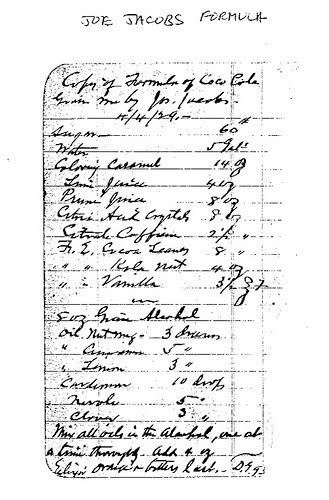 JOE JACOBS FORMULA
Copy of Formula of Coco Cola
Given me by Jos. Jacobs.
4/4/29.—
Sugar 60 #
Water 5 Gals
Coloring Caramel 14 oz
Lime Juice 4 oz
Prune Juice 8 oz
Citric Acid Crystals 8 oz
Citrate Caffein 2½ "
Fl. E. Cocoa Leaves 8 "
" " Kola Nut 4 oz
" " Vanilla 3½ oz
8 oz Grain Alcohol
Oil Nutmeg - 3 Drams
" Cinnamon 5 "
" Lemon 3 "
Cardamon 10 drops
Neroli 5 "
Cloves 3 "
Mix all oils in the Alcohol, one at
a time thoroughly. Add 4 oz
Elixir orange bitters last.